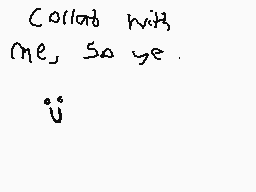 Collab with
me, so ye.
ü